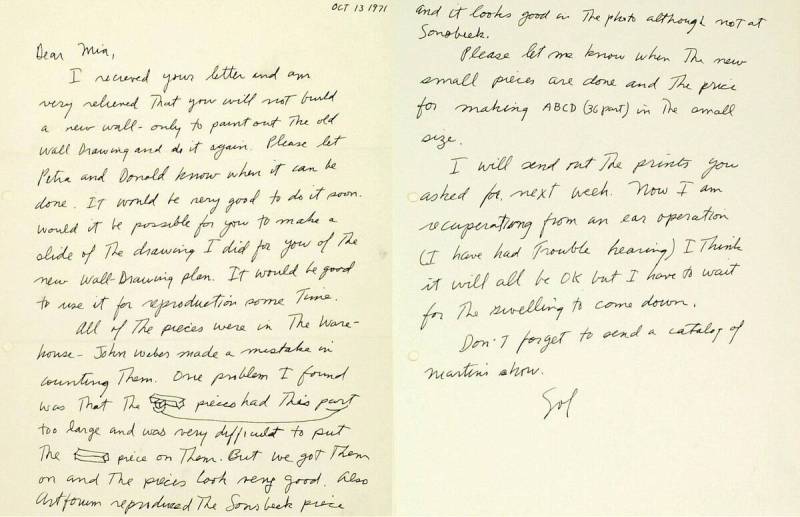 OCT 13 1971
Dear Mia,
I recieved your letter and am
very relieved that you will not build
a new wall - only to paint out the old
Wall Drawing and do it again. Please let
Petra and Donald know when it can be
done. It would be very good to do it soon.
Would it be possible for you to make a
slide of the drawing I did for you of the
new Wall Drawing plan. It would be good
to use it for reproduction some time.
All of the pieces were in the Ware-
house - John Weber made a mistake in
counting them. One problem I found
was that the pieces had this part
too large and was very difficult to put
the piece on them. But we got them
on and the pieces look very good. Also
Artforum reproduced the Sonsbeek piece
and it looks good in the photo although not at
Sonsbeek.
Please let me know when the new
small pieces are done and the price
for making ABCD (36 part) in the small
size.
I will send out the prints you
asked for, next week. Now I am
recuperationg from an ear operation
(I have had trouble hearing) I think
it will all be OK but I have to wait
for the swelling to come down.
Don't forget to send a catalog of
Martins show.
Sol